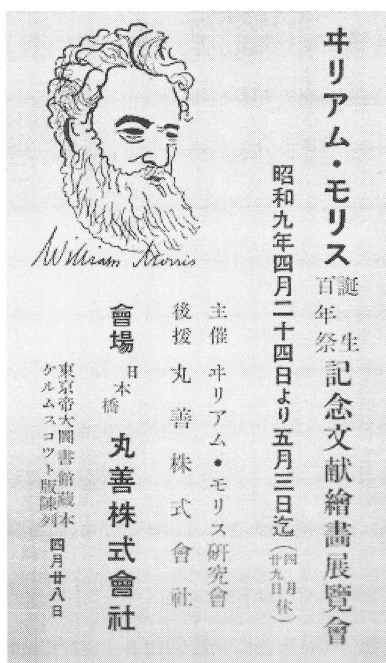 ヰリアム・モリス誕生百年祭記念文献繪畫展覽會
昭和九年四月二十四日より五月三日迄(四月廿九日休)
主催 ヰリアム・モリス研究會
後援 丸善株式會社
會場 日本橋 丸善株式會社
東京帝大圖書館藏本
ケルムスコツト版陳列 四月廿八日
William Morris